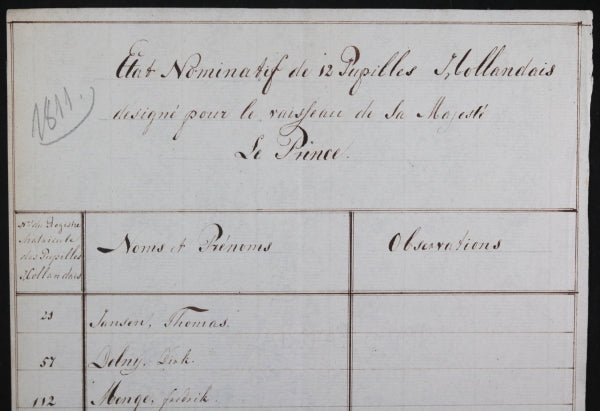 Etat Nominatif de 12 Pupilles Hollandais
designé pour le vaisseau de Sa Majesté
Le Prince.
1811.
Nos. de Registre
Matricule
des Pupilles
Hollandais
Noms et Prénoms
Observations
23
Jansen, Thomas.
57
Dolny, Dirk.
112
Menge, fredrik.